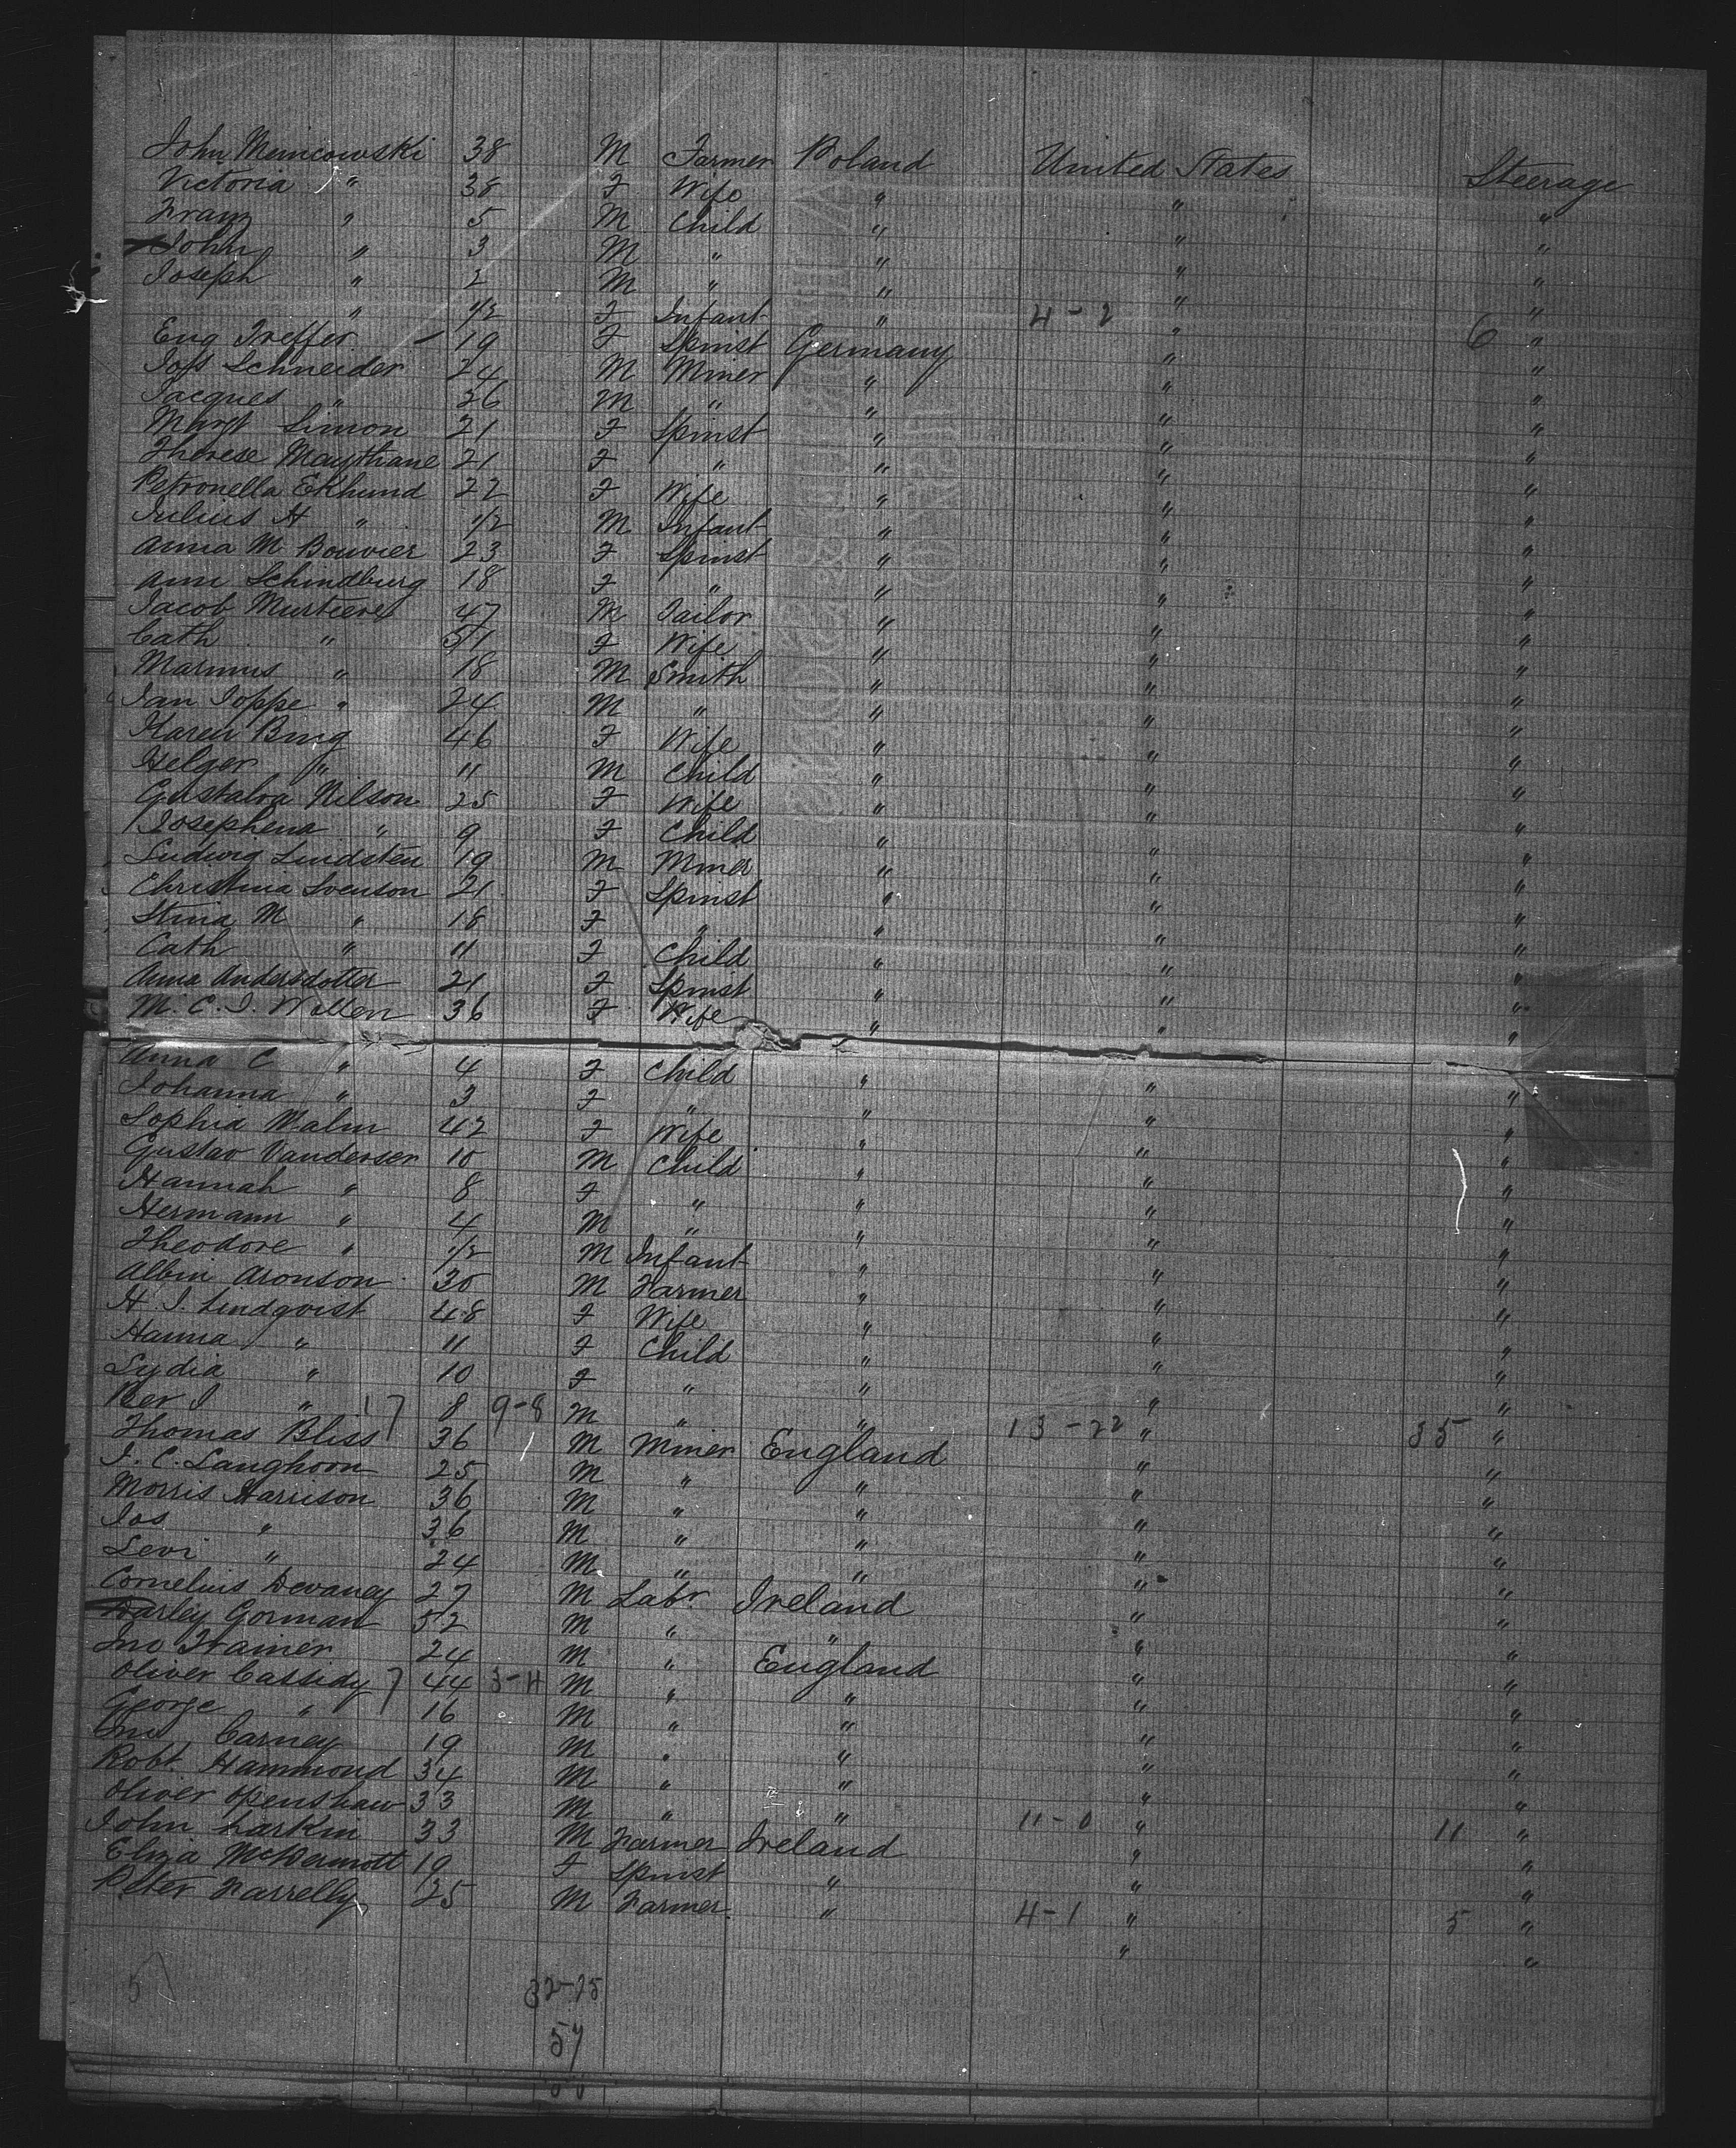 John Municowski 38 M Farmer Poland United States Steerage
Victoria " 38 F Wife " " "
Franz " 5 M Child " " "
John " 3 M " " " "
Joseph " 2 M " " " "
" 1/2 F Infant " 4-2 " "
Eug Treffer 19 F Spinst Germany " 6 "
Jos Schneider 24 M Miner " " "
Jacques " 26 M " " " "
Margt Simon 21 F Spinst " " "
Therese Maythane 21 F " " " "
Petronella Eklund 22 F Wife " " "
Julius H " 1/2 M Infant " " "
Anna M Bouvier 23 F Spinst " " "
Ann Schindburg 18 F " " " "
Jacob Murteere 47 M Tailor " " "
Cath " 51 F Wife " " "
Marinus " 18 M Smith " " "
Jan Joppe " 24 M " " " "
Karen Bing 46 F Wife " " "
Helger " 11 M Child " " "
Gustalva Nilson 25 F Wife " " "
Josephena " 9 F Child " " "
Ludwig Lindsten 19 M Miner " " "
Christina Svenson 21 F Spinst " " "
Stina M " 18 F " " " "
Cath " 11 F Child " " "
Anna Andersdotter 21 F Spinst " " "
M. C. J. Willen 36 F Wife " " "
Anna C " 4 F Child " " "
Johanna " 3 F " " " "
Sophia Malm 42 F Wife " " "
Gustav Vanderser 10 M Child " " "
Hannah " 8 F " " " "
Hermann " 4 M " " " "
Theodore " 1/2 M Infant " " "
Albin Aronson 30 M Farmer " " "
H. J. Lindqvist 48 F Wife " " "
Hanna " 11 F Child " " "
Lydia " 10 F " " " "
Ber J " 17 8 9-8 M " " 13-22 " 35 "
Thomas Bliss 36 M Miner England " "
J. C. Langhorn 25 M " " " "
Morris Harrison 36 M " " " "
Jos " 36 M " " " "
Levi " 24 M " " " "
Cornelius Devaney 27 M Labr Ireland " "
Darley Gorman 52 M " " " "
Jno Trainer 24 M " England " "
Oliver Cassidy 7 44 3-4 M " " " "
George " 16 M " " " "
Jno Carney 19 M " " " "
Robt. Hammond 34 M " " " "
Oliver Openshaw 33 M " " 11-0 " 11 "
John Larkin 33 M Farmer Ireland " "
Eliza McDermott 19 F Spinst " " "
Peter Farrelly 25 M Farmer " 4-1 " 5 "
" "
57
32-25
57